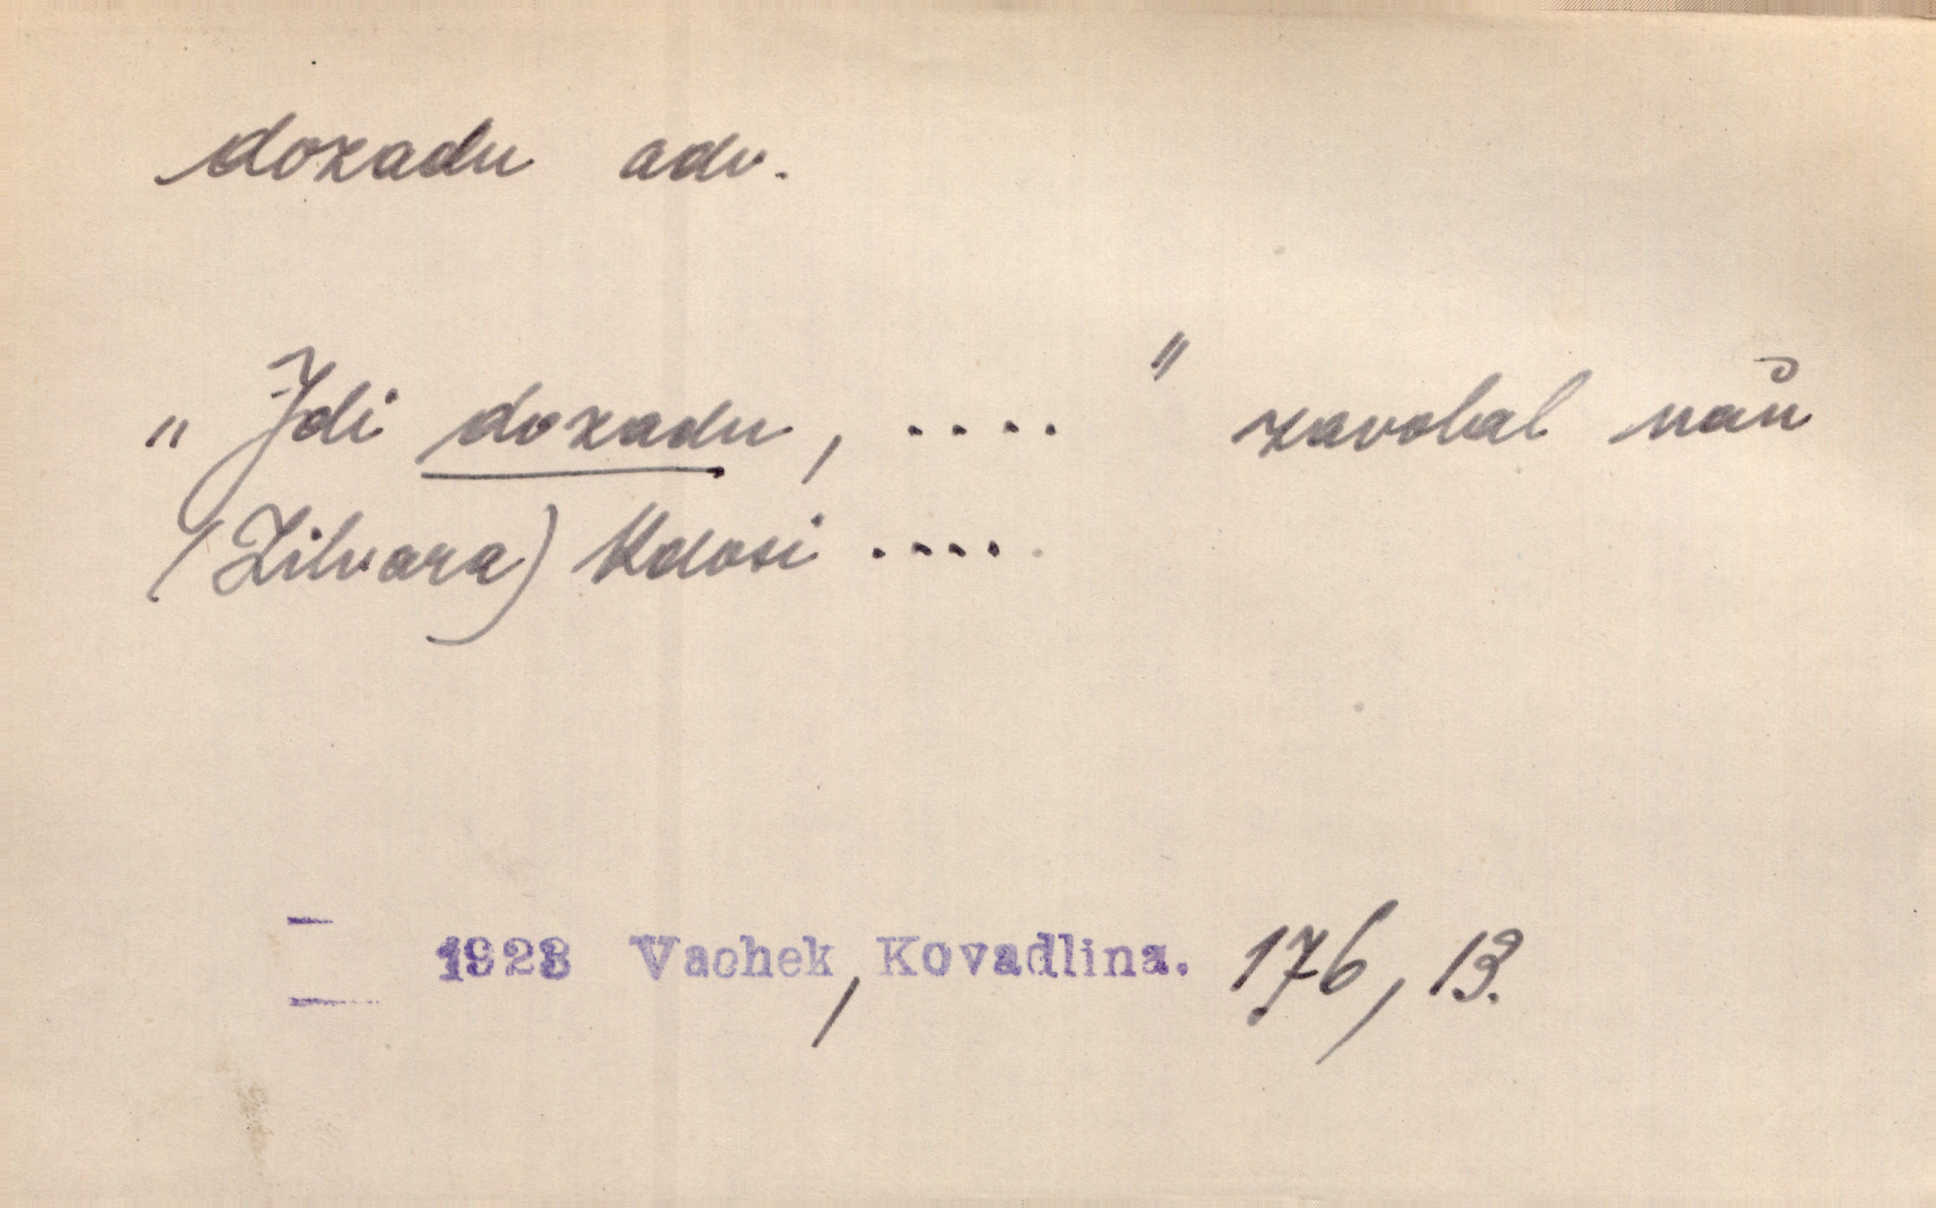 dozadu adv.
„Jdi dozadu, ....“ zavolal naň
(Zilvara) kdosi ....
1923 Vachek, Kovadlina. 176, 13.